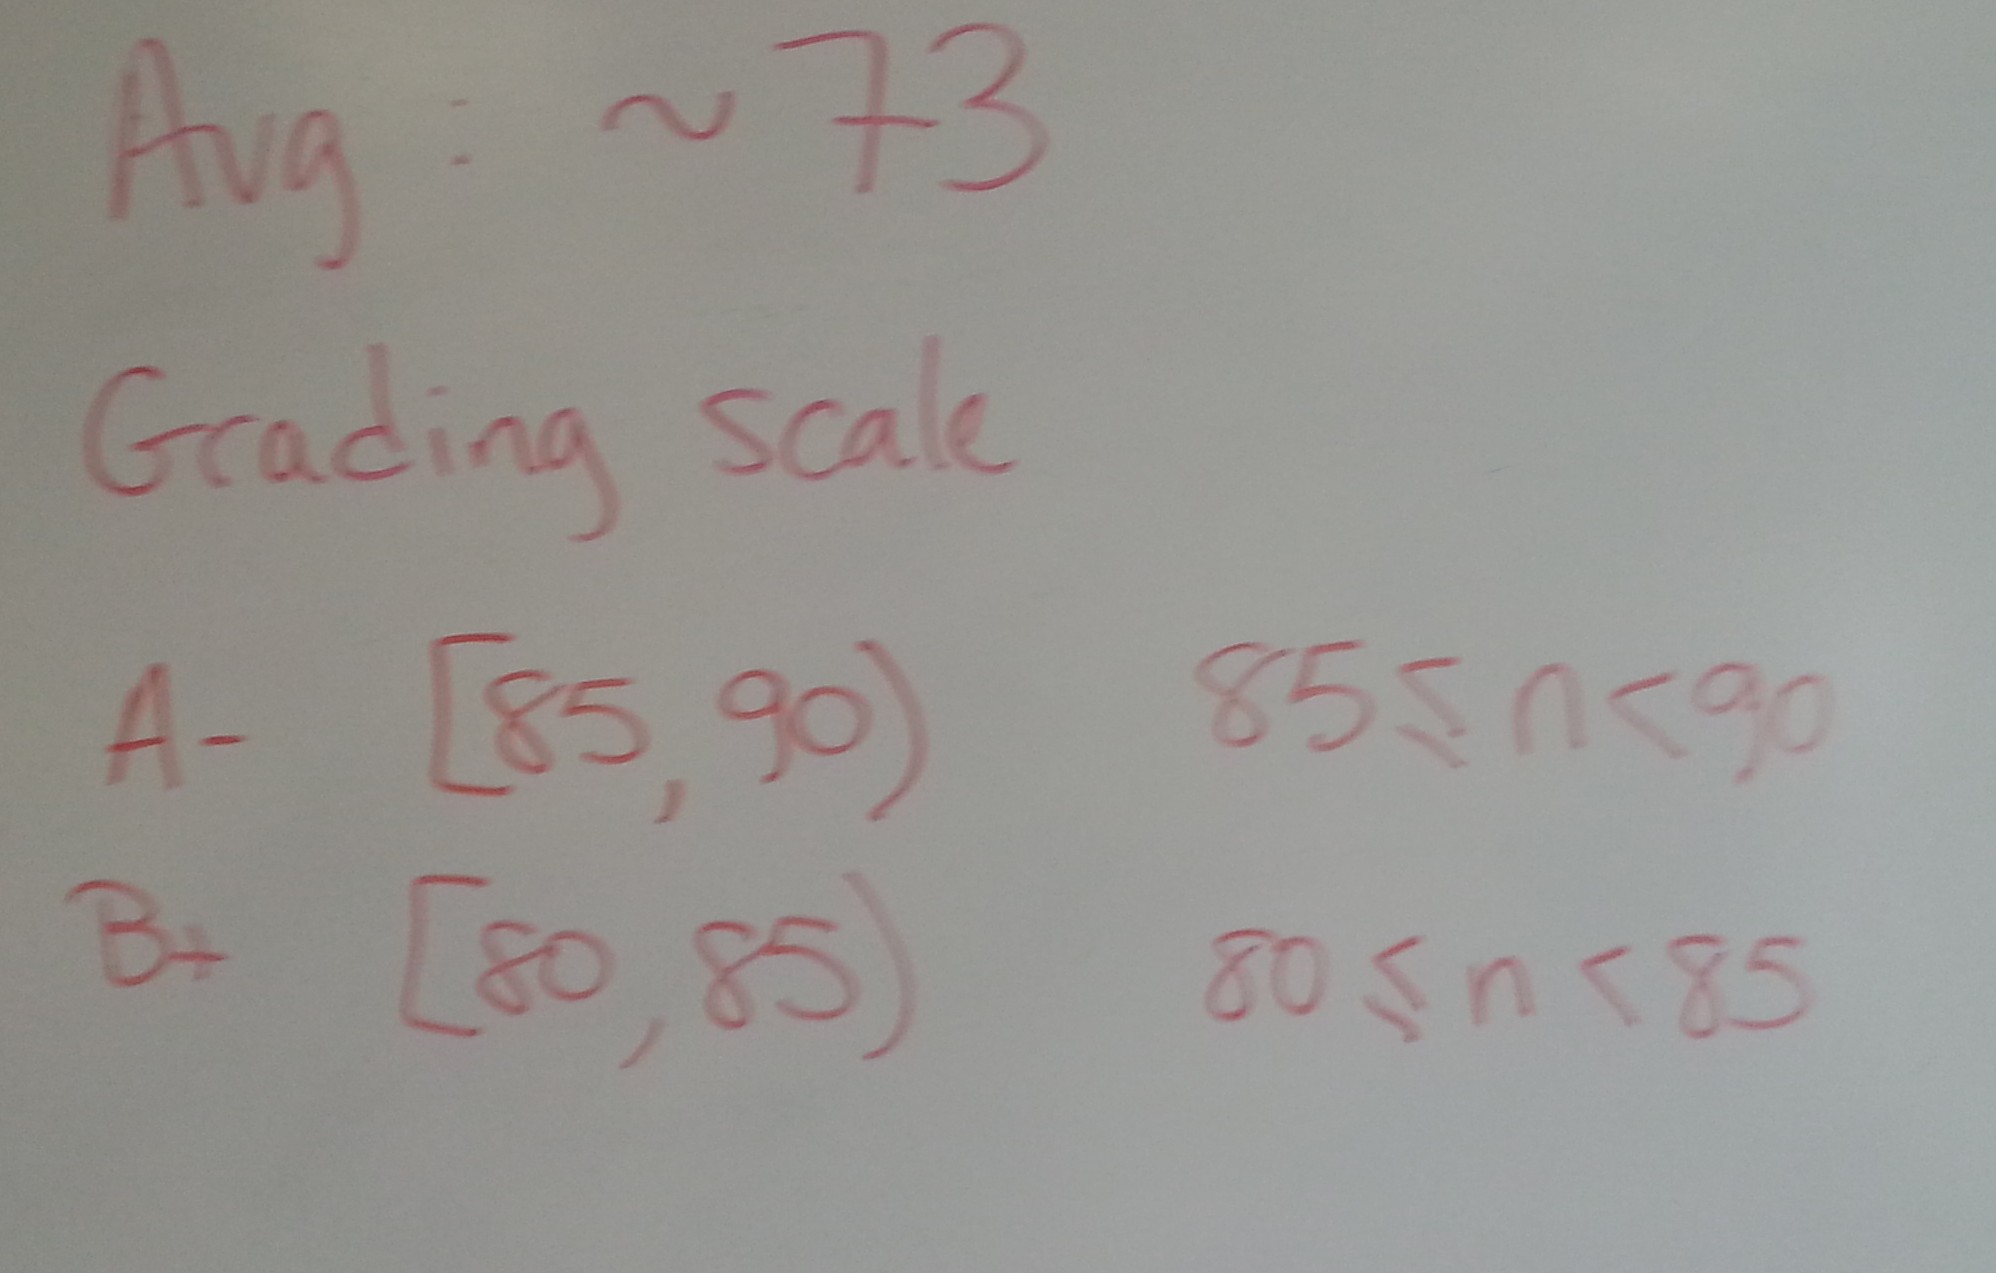 Avg : ~ 73
Grading scale
A- [85, 90) 85 ≤ n < 90
B+ [80, 85) 80 ≤ n < 85